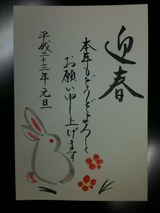 迎春
本年もどうぞよろしく
お願い申し上げます
平成二十三年元旦